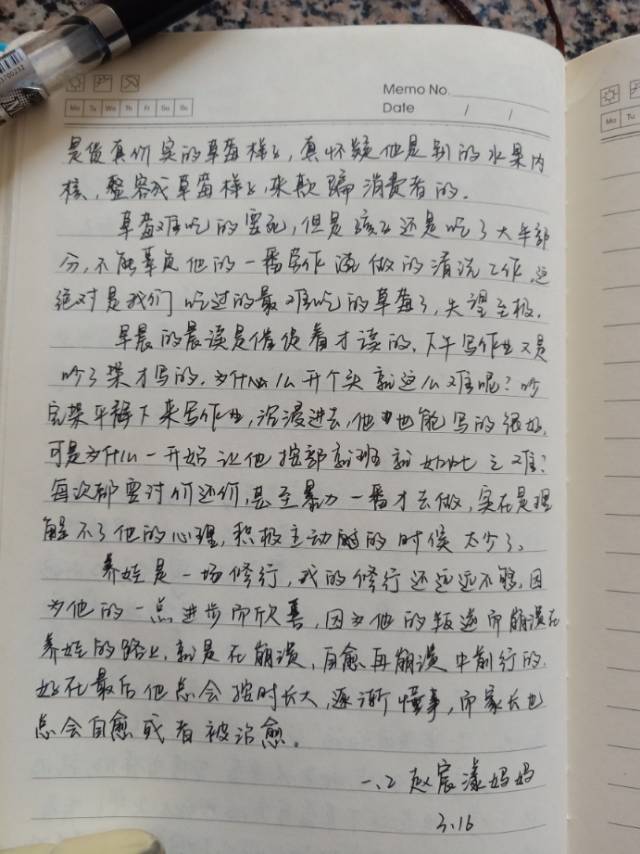 Memo No.
Mo Tu We Th Fr Sa Su
Date / /
是货真价实的草莓样子,真怀疑他是别的水果内
核,整容成草莓样子,来欺骗消费者的。
草莓难吃的要死,但是孩子还是吃了大半部
分,不能辜负他的一番劳作 做的清洗工作,这
绝对是我们吃过的最难吃的草莓了,失望至极。
早晨的晨读是催促着才读的,下午写作业又是
吵了架才写的,为什么开个头就这么难呢?吵
完架平静下来写作业,沉浸进去,他也能写的很好,
可是为什么一开始让他按部就班就如此之难?
每次都要讨价还价,甚至暴力一番才去做,实在是理
解不了他的心理,积极主动的时候太少了。
养娃是一场修行,我的修行还远远不够,因
为他的一点进步而欣喜,因为他的叛逆而崩溃在
养娃的路上,就是在崩溃,自愈再崩溃中前行的。
好在最后他总会按时长大,逐渐懂事,而家长也
总会自愈或者被治愈。
一、2 赵宸漾妈妈
3.16
Mo Tu